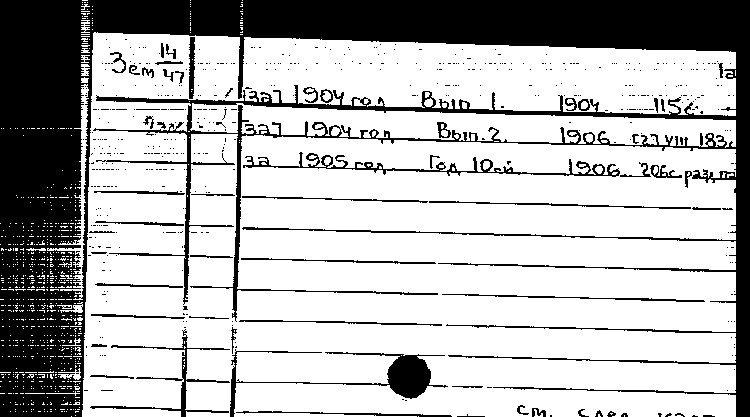 Зем 14/47
[за] 1904 год Вып 1. 1904 115с.
[за] 1904 год Вып. 2. 1906 VIII, 183с
за 1905 год Год 10-й 1906 206с. разд. па
см. след.